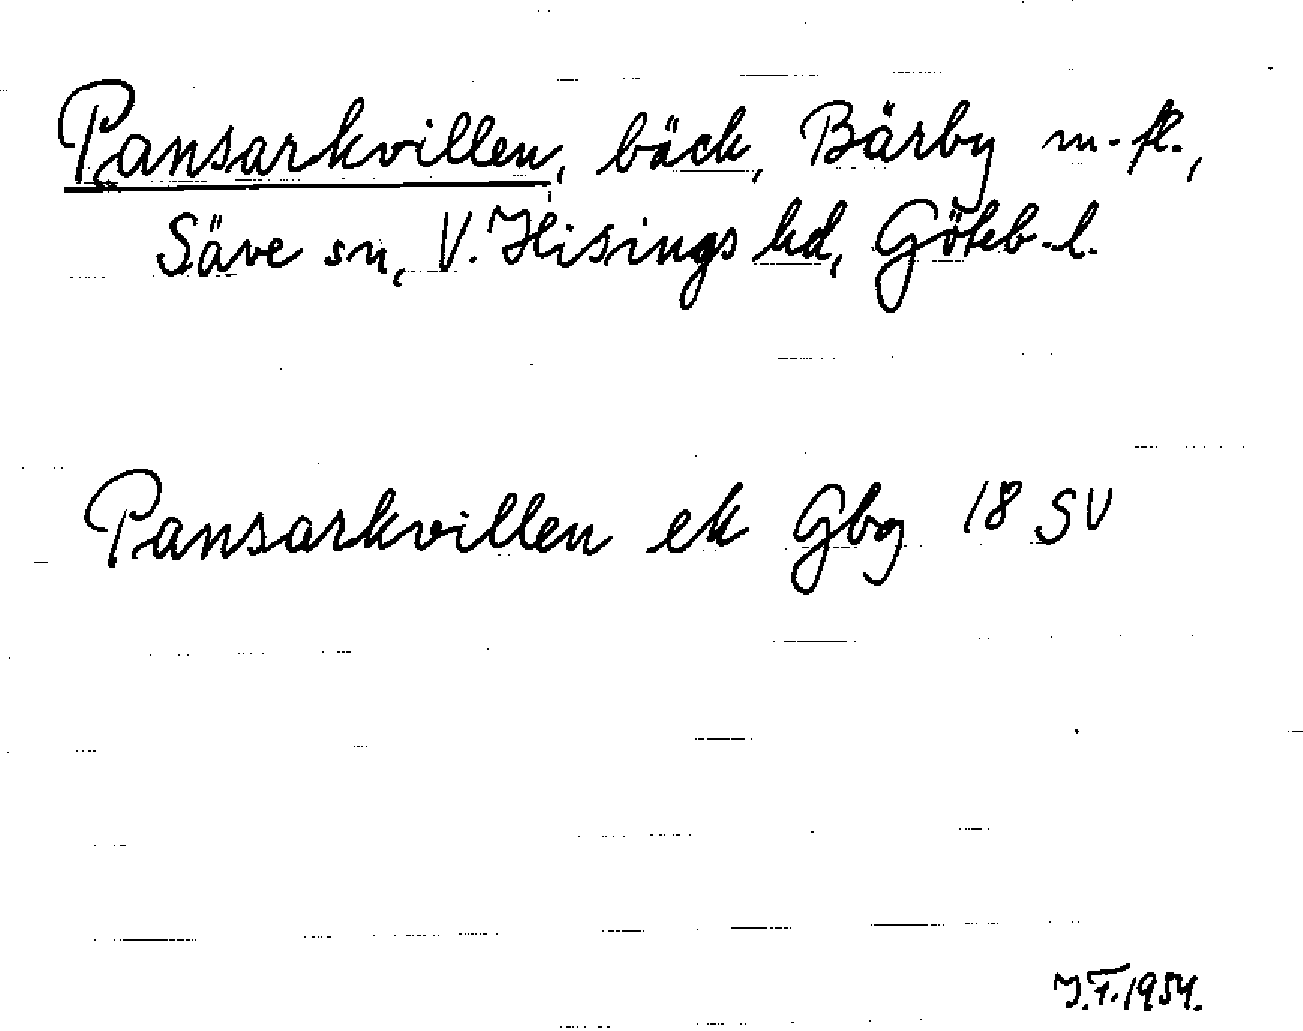 Pansarkvillen, bäck, Bärby m.fl.,
Säve sn, V. Hisings hd, Göteb. l.
Pansarkvillen ek Gbg 18 SV
J.F. 1954.